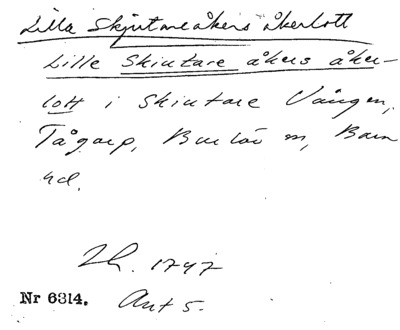 Lilla Skjutareåkers åkerlott
Lille Skiutare åkers åker-
lott i Skiutare Vången,
Tågarp, Burlöv sn, Bara
hd.
Lh. 1747
Nr 6314. Akt 5.